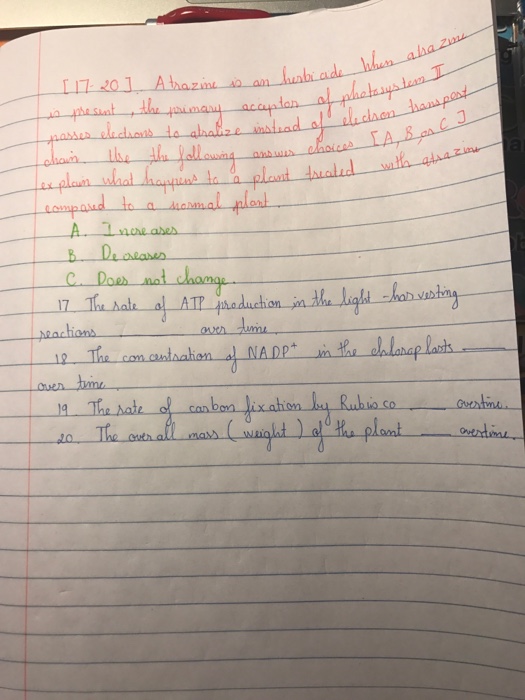 [17-20] Atrazine is an herbicade. When atrazine
is present, the primary acceptor of photosystem II
passes electrons to atralize instead of electron transport
chain. Use the following answer choices [A, B, or C]
explain what happens to a plant treated with atrazine
compared to a normal plant.
A. Increases
B. Decreases
C. Does not change.
17. The rate of ATP production in the light-harvesting
reactions ____ over time.
18. The concentration of NADP+ in the chloroplasts ____
over time.
19. The rate of carbon fixation by Rubisco ____ overtime.
20. The overall mass (weight) of the plant ____ overtime.